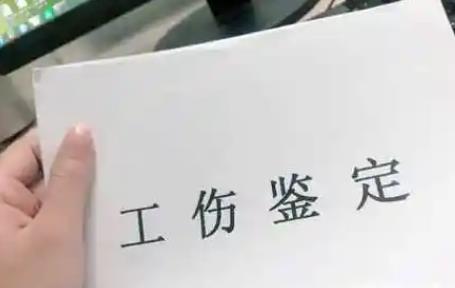 工伤鉴定